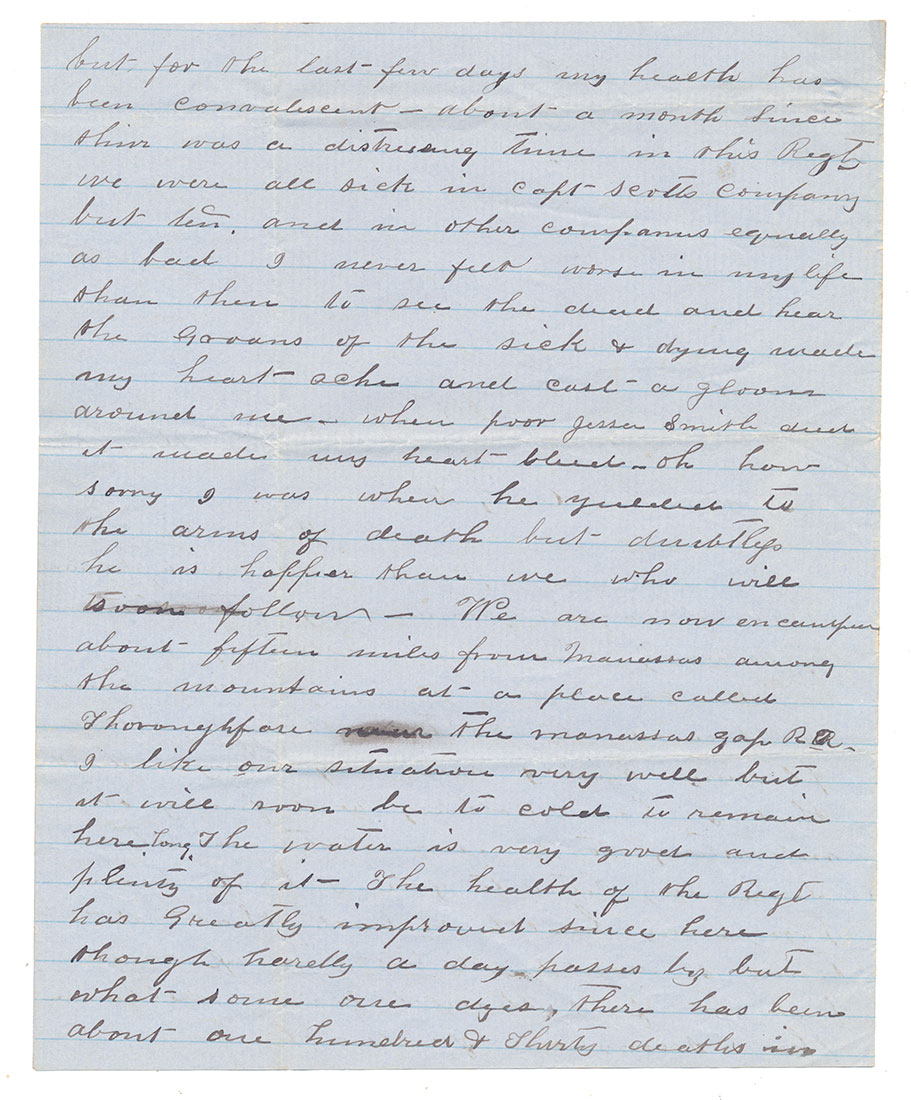 but for the last few days my health has
been convalescent – about a month since
thier was a distressing time in this Regt
we were all sick in capt Scotts company
but ten. and in other companus equally
as bad I never felt worse in my life
than then to see the dead and hear
the Groans of the sick & dying made
my heart ache and cast a gloom
around me – when poor Jesse Smith died
it made my heart bleed – oh how
sorry I was when he yielded to
the arms of death but doubtless
he is happier than we who will
soon follow – We are now encamped
about fifteen miles from Manassas among
the mountains at a place called
Thoroughfare near the manassas gap RR –
I like our situation very well but
it will soon be to cold to remain
here long. The water is very good and
plinty of it – The health of the Regt
has Greatly improved since here
though hardly a day passes by but
what some one dyes, there has been
about one hundred & Thirty deaths in